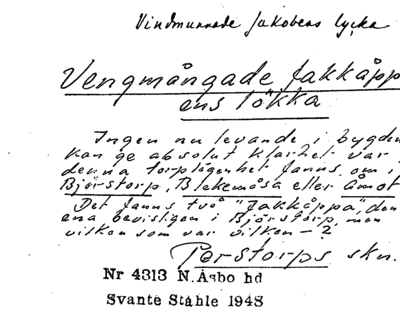 Vindmurade Jakobens lycka
Vengmångade Jakkåpp
ens lökka
Ingen nu levande i bygden
kan ge absolut klarhet var
denna torplägenhet fanns, om i
Björstorp, Blekemosa eller Åmot
Det fanns två "Jakkåppa", den
ena bevisligen i Björstorp, men
vilken som var vilken – ?
Perstorps skn.
Nr 4313 N.Åsbo hd
Svante Ståhle 1948